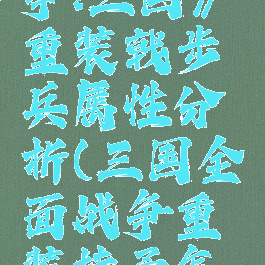 争:三国》
重装戟步
兵属性分
析(三国全
面战争重
装